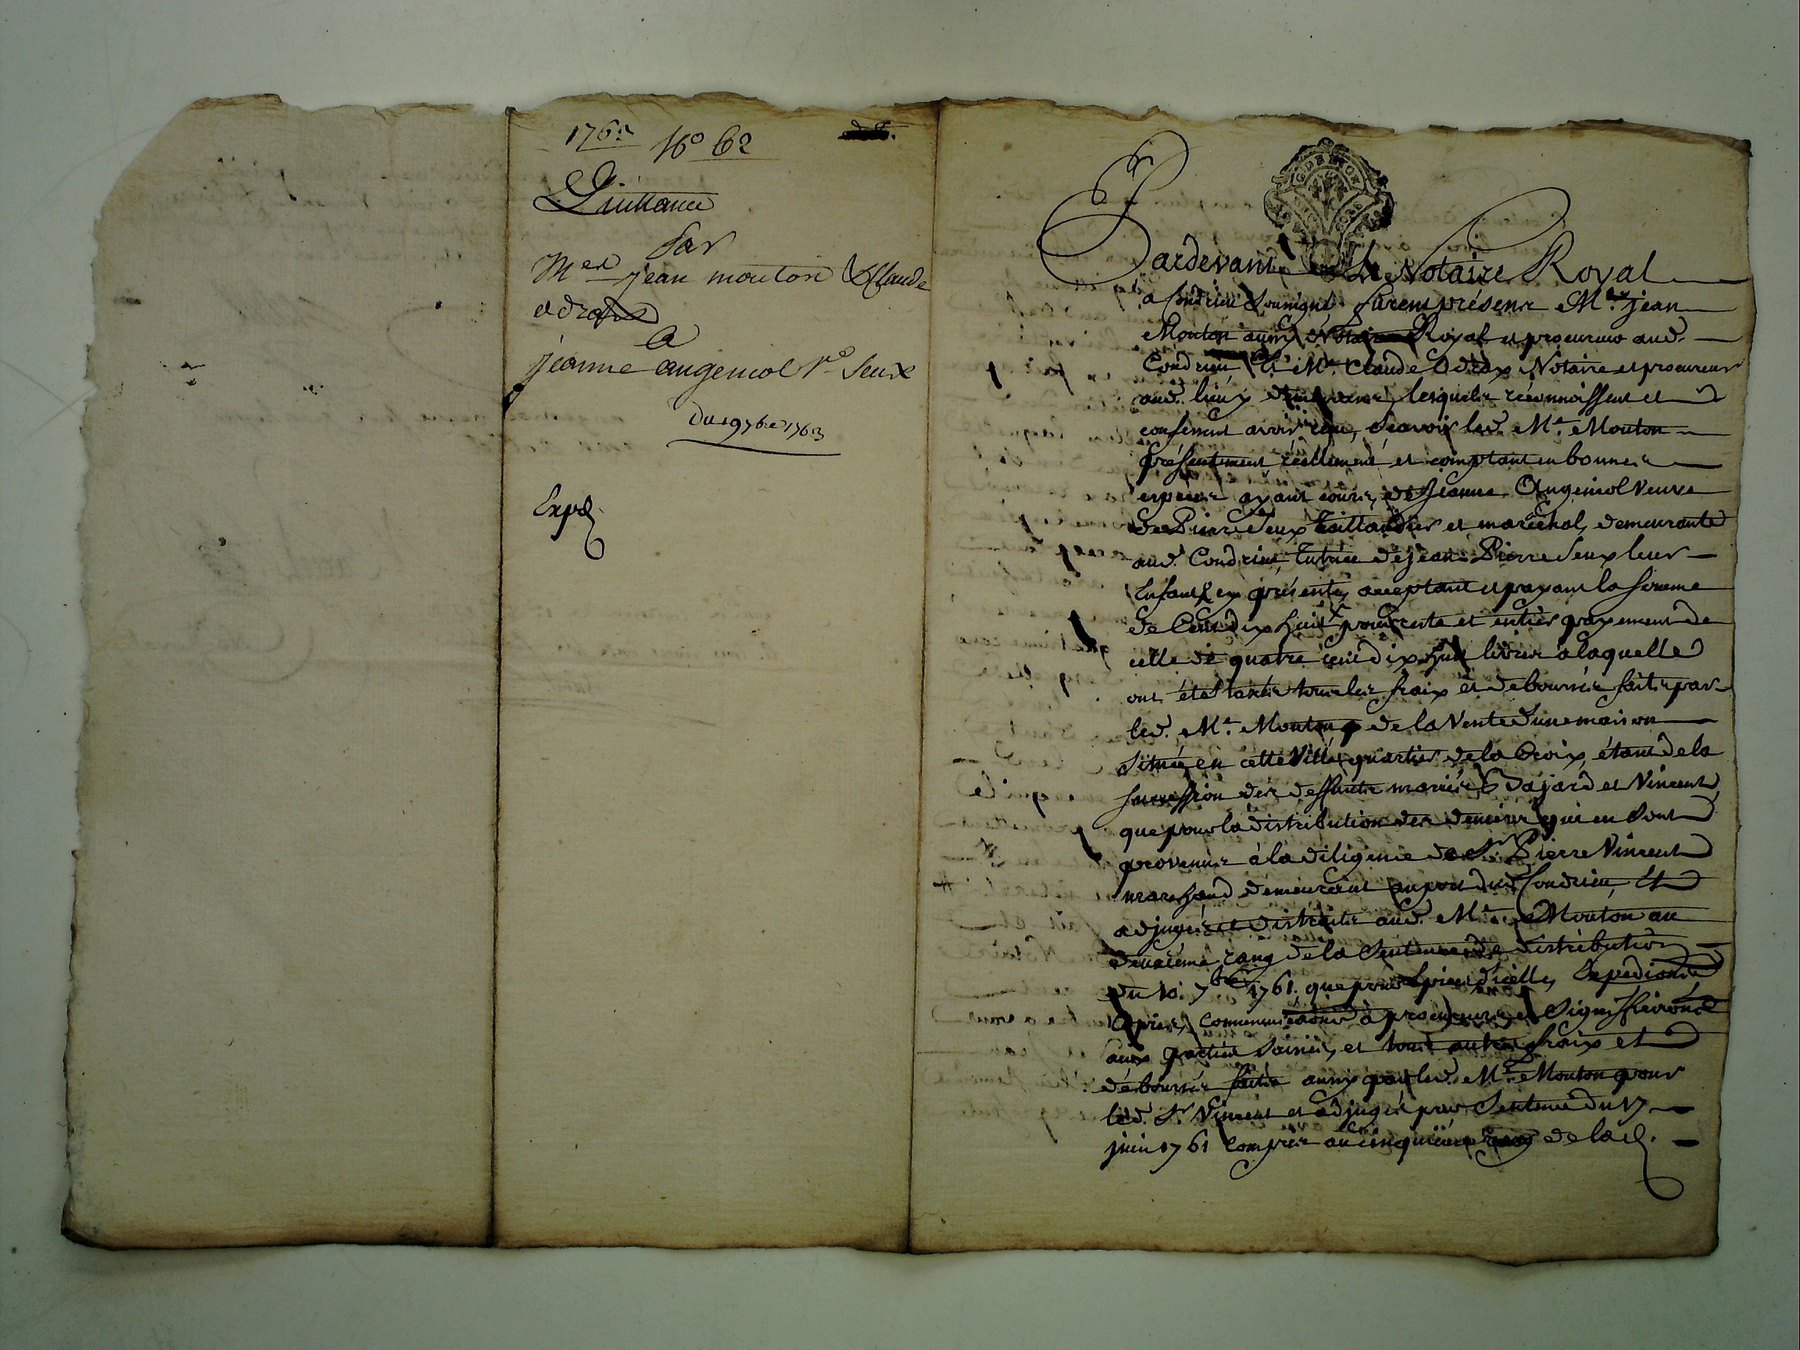 1763
N° 62
Quittance
Par
Mes jean mouton & Claude
odrax
a
jeanne angeniol Ve Seux
Du 19 7bre 1763
Expd
GDE LYON
Pardevant Le Notaire Royal
a Condrieu Soussigné furent présens Me jean
Mouton aussy Notaire Royal et procureur aud.
Condrieu & Me Claude Odrax Notaire et procureur
aud. lieu y demeurant, lesquels réconnoissent et
confessent avoir reçu, sçavoir led. Me Mouton
présentement réellement et comptant en bonnes
espèces ayant cours, de Jeanne Angeniol Veuve
de Pierre Seux taillandier et maréchal, demeurante
aud. Condrieu tutrice de jean Pierre Seux leur
Enfant icy présente, acceptant et payant la somme
de Cent dix huit pour reste et entier payement de
celle de quatre cent dix huit livres a laquelle
ont étés taxés tous les fraix et deboursés faits par
led. Me Mouton de la Vente d'une maison
située en cette Ville quartier de la Croix, étant de la
succession des deffunts mariés Bajard et Vincent,
que pour la distribution des deniers qui en sont
provenus à la diligence de Sr Pierre Vincent
marchand demeurant au port dud. Condrieu, Et
adjugés et distraits aud. Me Mouton au
deuxième rang de la Sentence de distribution
du 10. 7bre 1761. que pour Epices d'icelle, Expedition
Copies, communications à procureurs, et Signiffications
aux parties Saisies, et tous autres fraix et
déboursés faits aussy par led. Me Mouton pour
led. Sr Vincent et adjugés par Sentence du 17
juin 1761 compris au cinquième rang de lad.